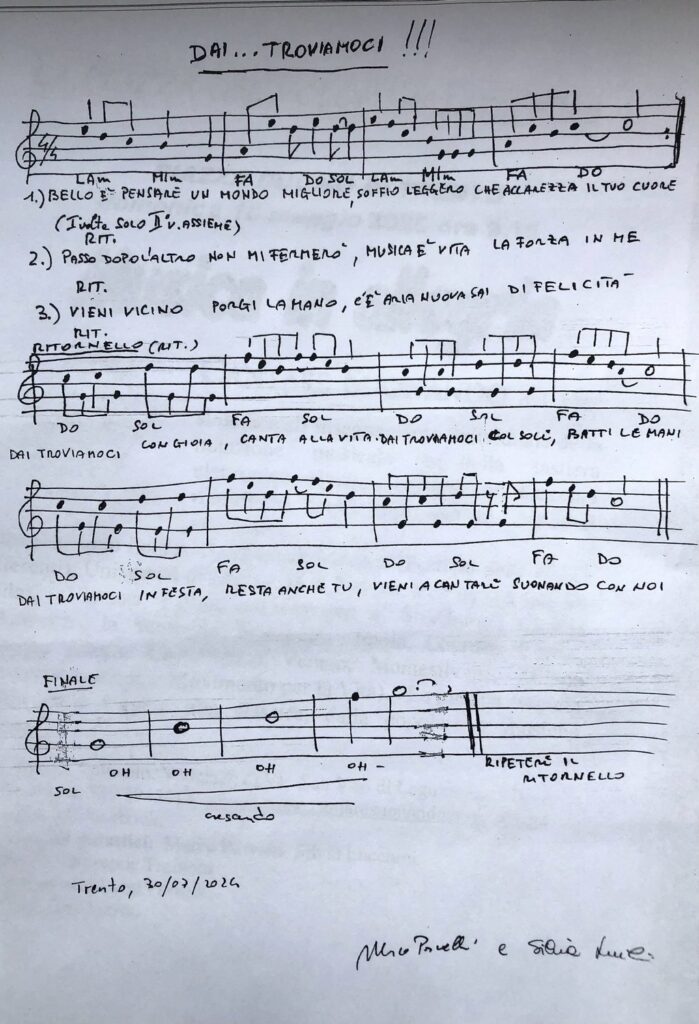 DAI... TROVIAMOCI !!!
4/4
LAm MIm FA DO SOL LAm MIm FA DO
1.) BELLO È PENSARE UN MONDO MIGLIORE, SOFFIO LEGGERO CHE ACCAREZZA IL TUO CUORE
(I volta SOLO II V. ASSIEME)
RIT.
2.) PASSO DOPO L'ALTRO NON MI FERMERÒ, MUSICA È VITA LA FORZA IN ME
RIT.
3.) VIENI VICINO PORGI LA MANO, C'È ARIA NUOVA SAI DI FELICITÀ
RIT.
RITORNELLO (RIT.)
DO SOL FA SOL DO SOL FA DO
DAI TROVIAMOCI CON GIOIA, CANTA ALLA VITA. DAI TROVIAMOCI COL SOLE, BATTI LE MANI
DO SOL FA SOL DO SOL FA DO
DAI TROVIAMOCI IN FESTA, RESTA ANCHE TU, VIENI A CANTARE SUONANDO CON NOI
FINALE
OH OH OH OH -
SOL
RIPETERE IL
RITORNELLO
crescendo
Trento, 30/07/2024
e Silvia